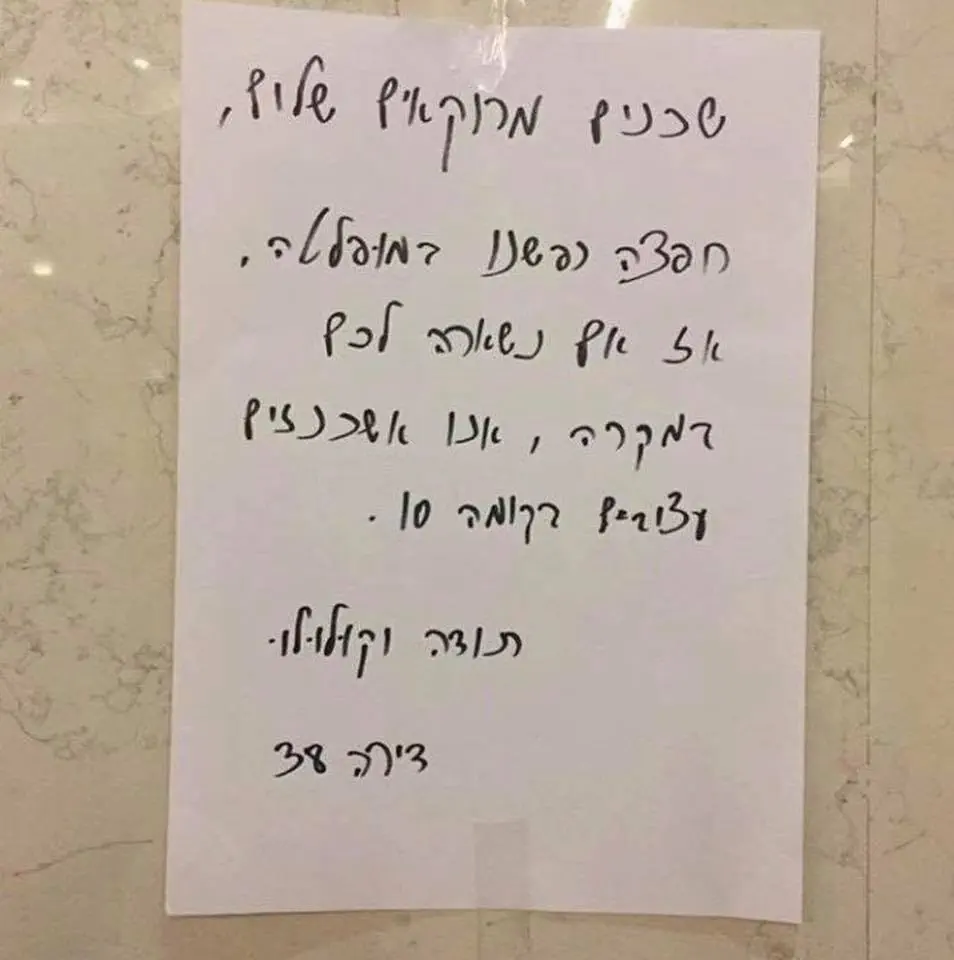 שכנים מרוקאים שלום,
חפצה נפשנו במופלטה,
אז אם נשארה לכם
במקרה, אנו אשכנזים
עצובים בקומה 10.
תודה וקולולו.
דירה 38